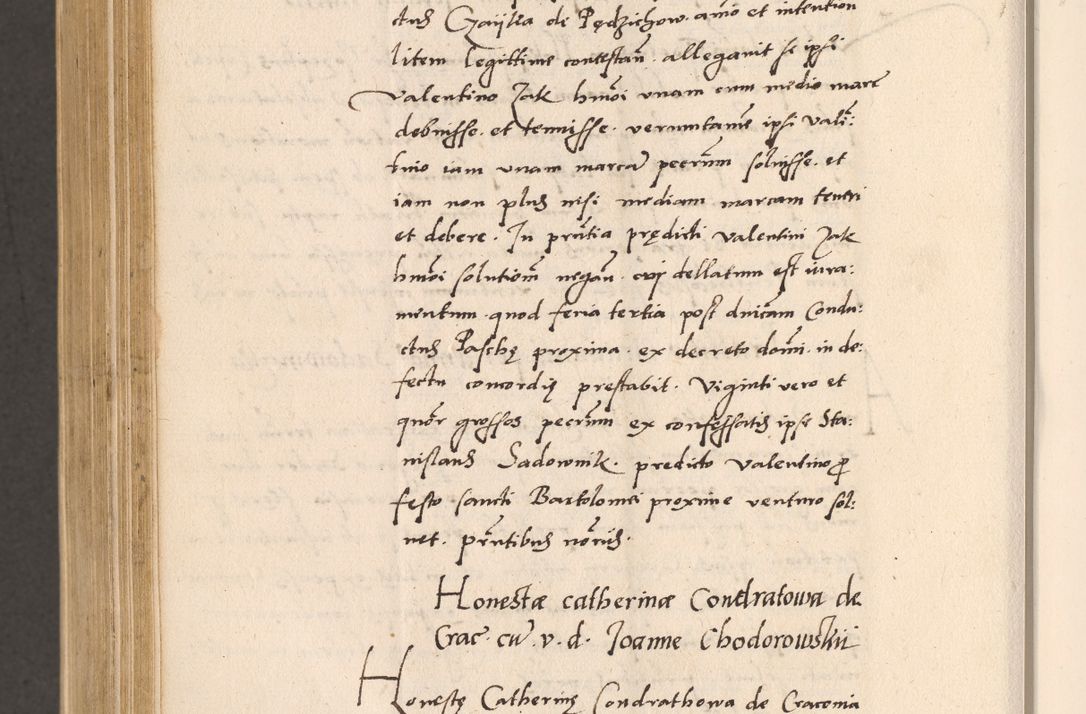 ctus Gaÿlka de Pędzichow. aīo et intention
litem legittime contestañ. allegavit se ipsi
Valentino Zak hm̃oi vnam cum medio marc
debuisse. et tenuisse. veruntamẽ ipsi Vali:
tino iam vnam marcã pecc̃um soluisse. et
iam non plus nisi mediam marcam teneri
et debere. In pñtia prędicti Valentini Zak
hm̃oi solutionẽ negañ. cui dellatum est iura:
mentum. quod feria tertia post dnicam Condu:
ctus Paschę proxima. ex decreto domĩ. in de:
fectu concordię prestabit. Viginti vero et
quãor grossos pecc̃um ex confessatis ipse Sta:
nislaus Sadownik. predicto Valentino ꝓ
festo sancti Bartolomei proxime venturo sol:
uet. pñtibus nõriis.
Honestæ catherinæ Condratowa de
Crac̃. cũ. v. d. Joanne Chodorowskii
Honestę Catherinę Condrathowa de Cracouia